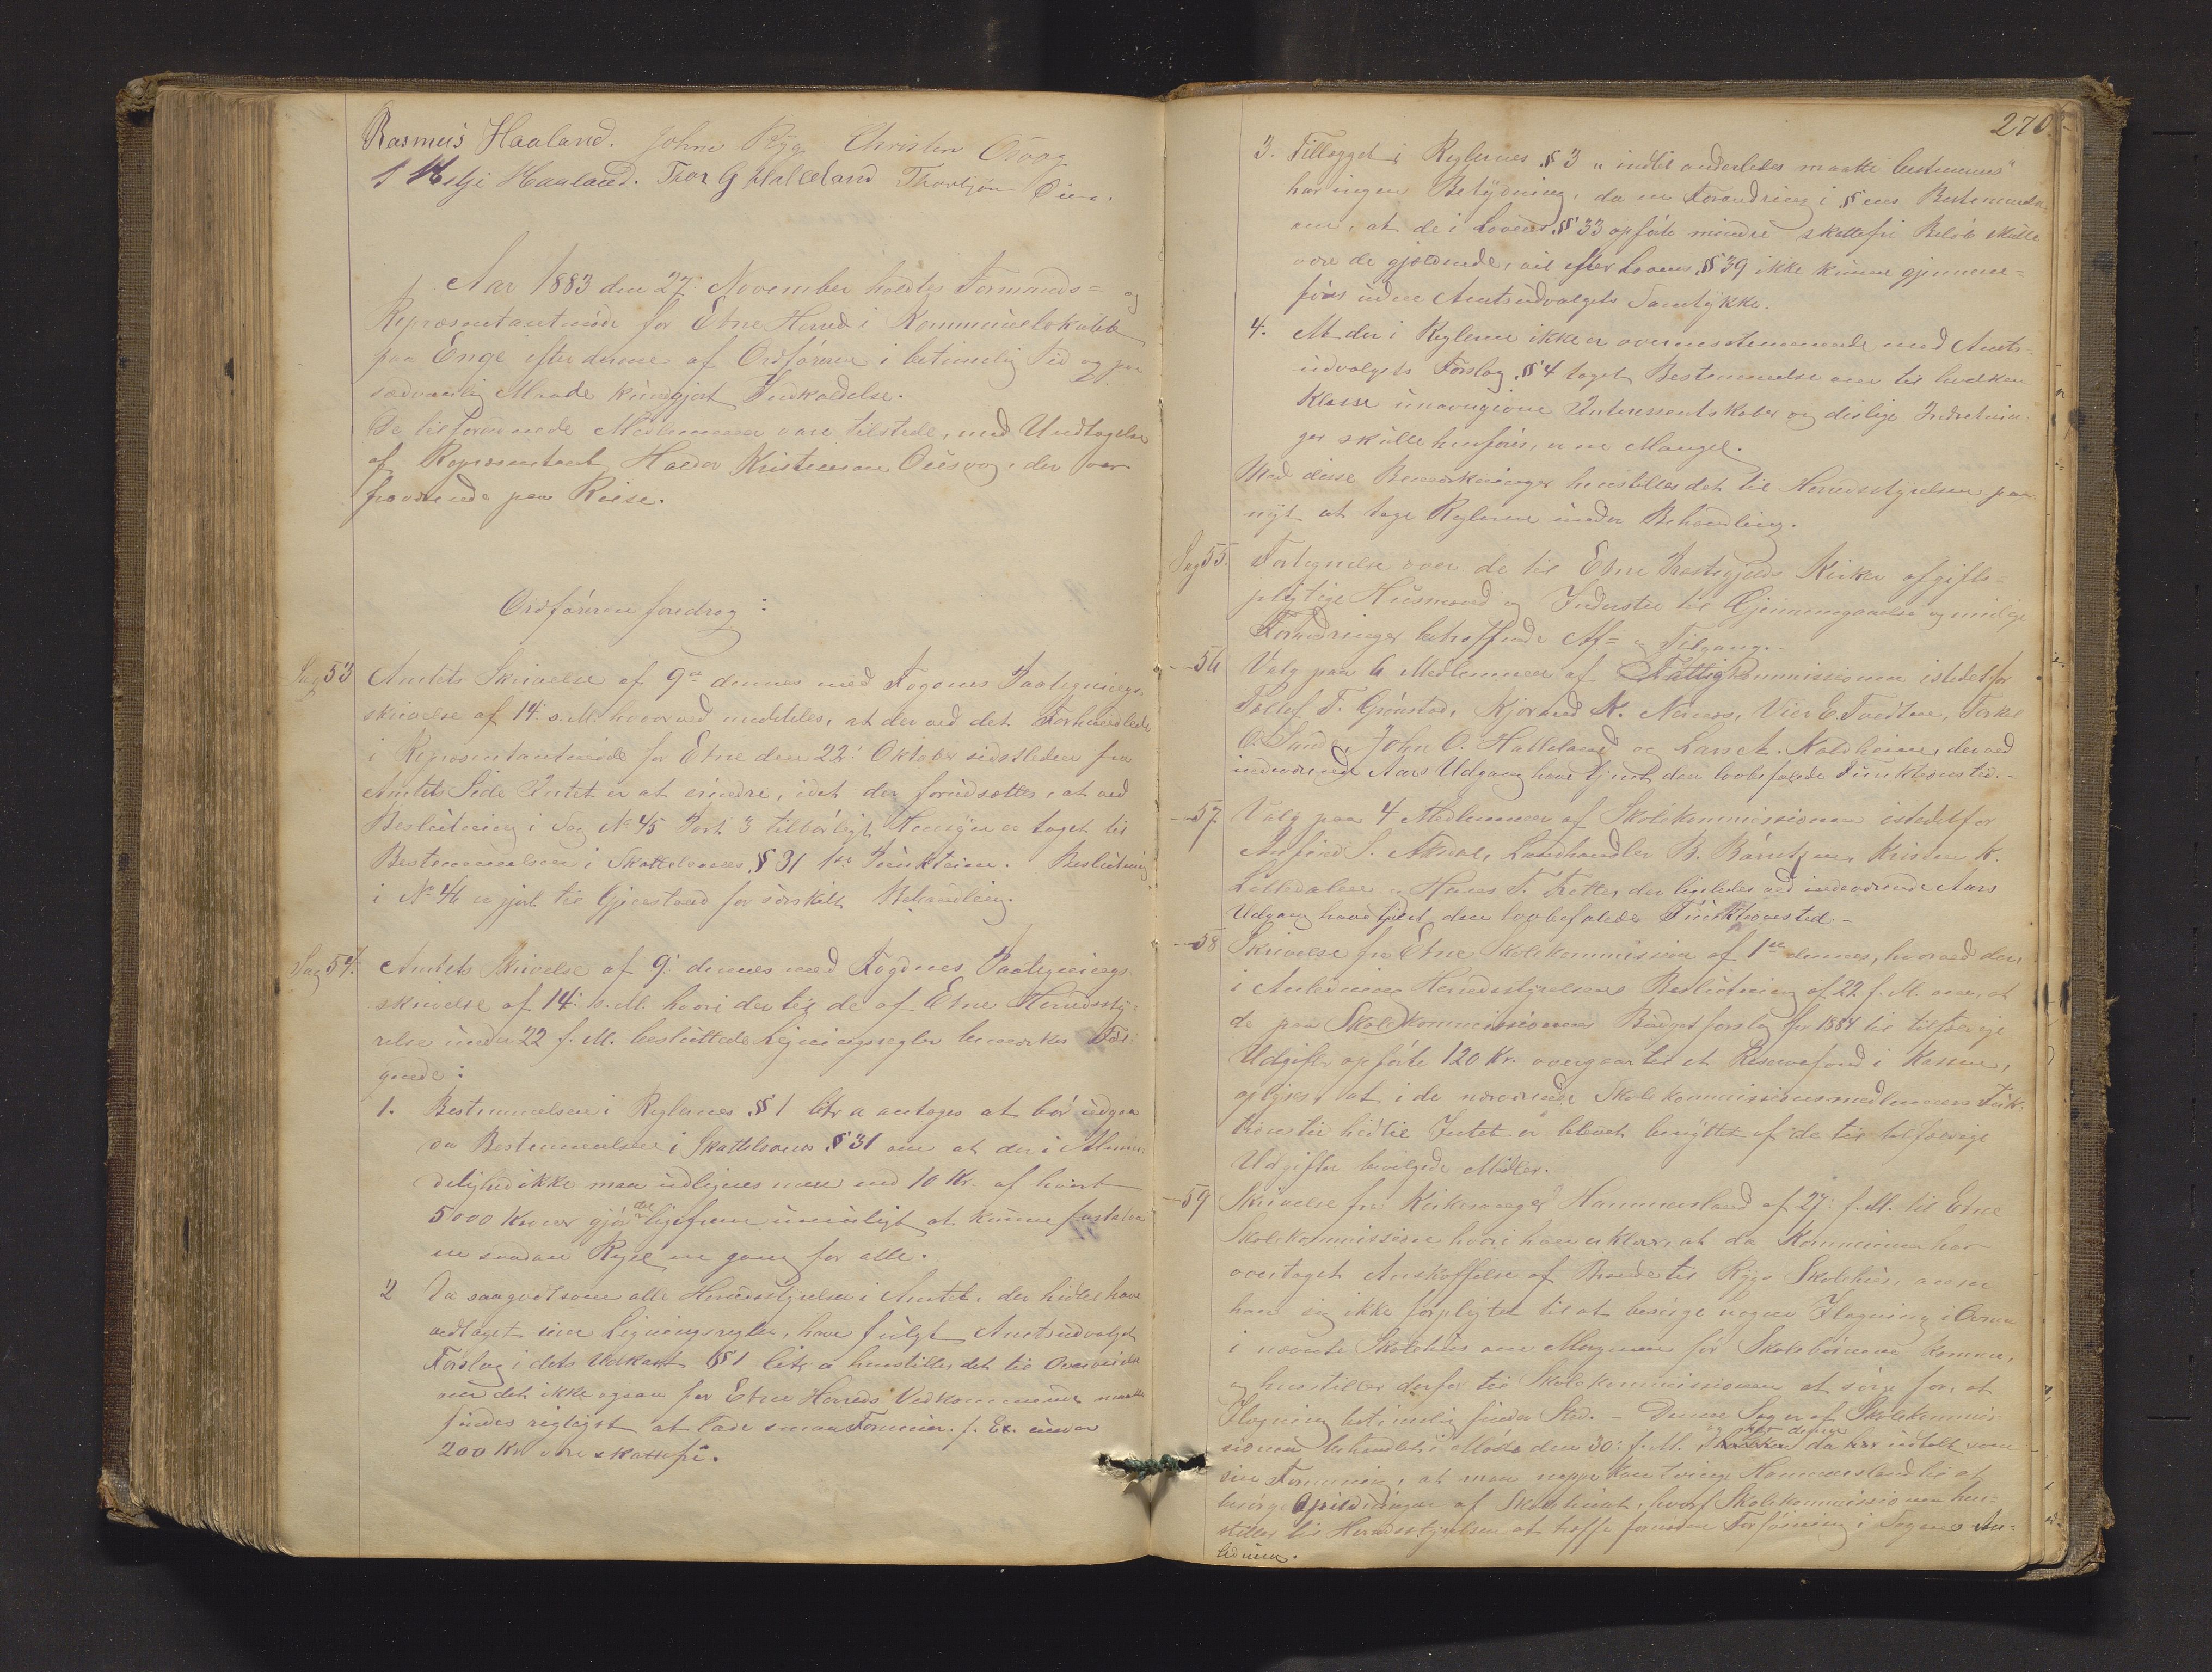 Rasmus Haaland. Johne Rygg Christen Osvag
S Helje Haaland. Thor G Halleland Thorbjørn Øien.
Aar 1883 den 27: November holdtes Formands= og
Repræsentantmøde for Etne Herred i Kommunelokalet
paa Enge efter denne af Ordføreren i betimelig Tid og paa
sædvanlig Maade kundgjort Indkaldelse.
De tilforordnede Medlemmer vare tilstede, med Undtagelse
af Repræsentant Haldor Kristensen Ousvog, der var
fraværende paa Reise.
Ordføreren foredrog:
Sag 53 Amtets Skrivelse af 9de dennes med Fogdens Paategnings-
skrivelse af 14: s. M. hvorved meddeles, at der ved det Forhandlede
i Repræsentantmøde for Etne den 22: Oktober sidstleden fra
Amtets Side Intet er at erindre, idet der forudsættes, at ved
Beslutning i Sag No 45 Post 3 tilbørligt Hensyn er taget til
Bestemmelsen i Skattelovens § 31 1ste Punktum. Beslutning
i No 46 er gjort til Gjenstand for særskilt Behandling.
Sag 54. Amtets Skrivelse af 9: dennes med Fogdens Paategnings-
skrivelse af 14: s. M. hvori der til de af Etne Herredssty-
relse under 22 f. M. besluttede Ligningsregler bemærkes Føl-
gende:
1. Bestemmelsen i Reglernes § 1 litr a antages at bør udgaa
da Bestemmelsen i Skattelovens § 31 om at der i Almin-
delighed ikke maa udlignes mere end 10 Kr. af hvert
5000 Kroner gjør det ligefrem umuligt at kunne fastslaa
en saadan Regel en gang for alle.
2 Da saagodtsom alle Herredsstyrelser i Amtet, der hidtil have
vedtaget sine Ligningsregler, have fulgt Amtsudvalgets
Forslag i dets Udkast § 1 litr a henstilles det til Overveielse
om det ikke ogsaa for Etne Herreds Vedkommende maatte
findes rigtigst at lade smaa Formuer f. Ex. under
200 Kr være skattefri.
270
3. Tillægget i Reglernes § 3 "indtil anderledes maatte bestemmes"
har ingen Betydning, da en Forandring i §ens Bestemmelse
om, at de i Lovens § 33 opførte mindre skattefri Beløb skulle
være de gjældende, vil efter Lovens § 39 ikke kunne gjennem=
føres uden Amtsudvalgets Samtykke.
4. At der i Reglerne ikke er overensstemmende med Amts-
udvalgets Forslag § 4 taget Bestemmelse om til hvilken
Klasse unavngivne Interessentskaber og deslige Indretnin-
ger skulle henføres, er en Mangel.
Med disse Bemærkninger henstilles det til Herredsstyrelsen paa
nyt at tage Reglerne under Behandling.
Sag 55. Fortegnelse over de til Etne Præstegjelds Kirker afgifts=
pligtige Husmænd og Inderster til Gjennemgaaelse og mulige
Forandringer betreffende Af= og Tilgang.-
- 56 Valg paa 6 Medlemmer af Fattigkommissionen istedetfor
Tollef T. Grønstad, Kjørand K. Nernes, Vier E. Tvedten, Torkel
O. Sande, John O. Halleland og Lars A. Kaldheim, der ved
indeværende Aars Udgang have tjent den lovbefalede Funktionstid.-
- 57 Valg paa 4 Medlemmer af Skolekommissionen istedetfor
Arfind S. Aksdal, Landhandler B. Børretzen, Kristen K.
Litledalen og Hans T. Trette, der ligeledes ved indeværende Aars
Udgang have tjent den lovbefalede Funktionstid-
- 58 Skrivelse fra Etne Skolekommission af 1ste dennes, hvorved den,
i Anledning Herredsstyrelsens Beslutning af 22 f. M. om, at
de paa Skolekommissionens Budgetforslag for 1884 til tilfældige
Udgifter opførte 120 Kr. overgaar til et Reservefond i Kassen,
oplyses, at i de nærværende Skolekommissionsmedlemmers Funk-
tionstid hidtil Intet er blevet benyttet af de til tilfældige
Udgifter bevilgede Midler.
- 59 Skrivelse fra Kirkesanger Hammersland af 27: f. M. til Etne
Skolekommission hvori han erklærer, at da Kommunen har
overtaget Anskaffelse af Brænde til Rygg Skolehus, anser
han sig ikke forpligtet til at besørge nogen Ilægning i Ovnen
i nævnte Skolehus om Morgenen før Skolebørnene komme,
og henstiller derfor til Skolekommissionen at sørge for, at
Ilægning betimelig finder Sted. - Denne Sag er af Skolekommis-
sionen behandlet i Møde den 30: f. M., da har udtalt som
sin Formening, at man neppe kan tvinge Hammersland til at
besørge Opildningen af Skolehuset, hvorfor Skolekommissionen hen=
stiller til Herredsstyrelsen at træffe fornøden Forføining i Sagens An=
ledning.